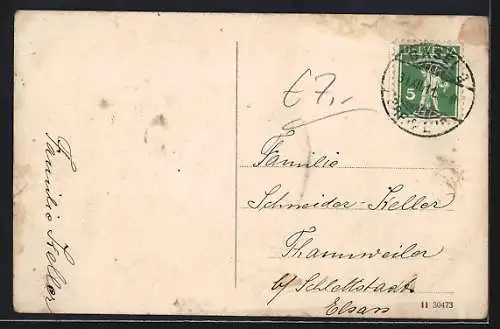 £7,-
5
Familie
Schneider-Keller
Thannweiler
b/ Schlettstadt
Elsass
Familie Keller
11 30473